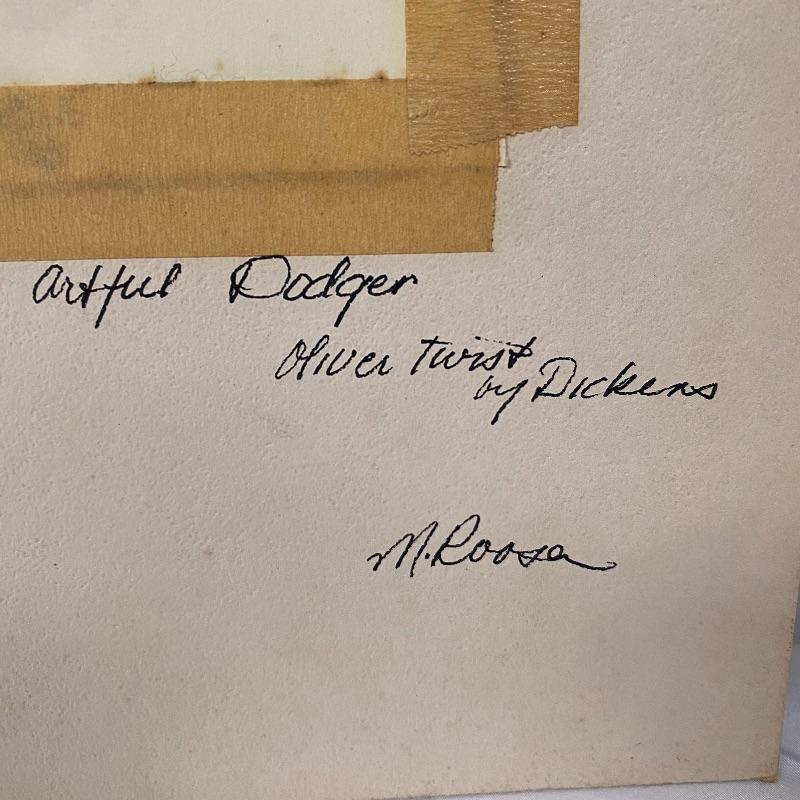 Artful Dodger
Oliver Twist
by Dickens
M. Roosa